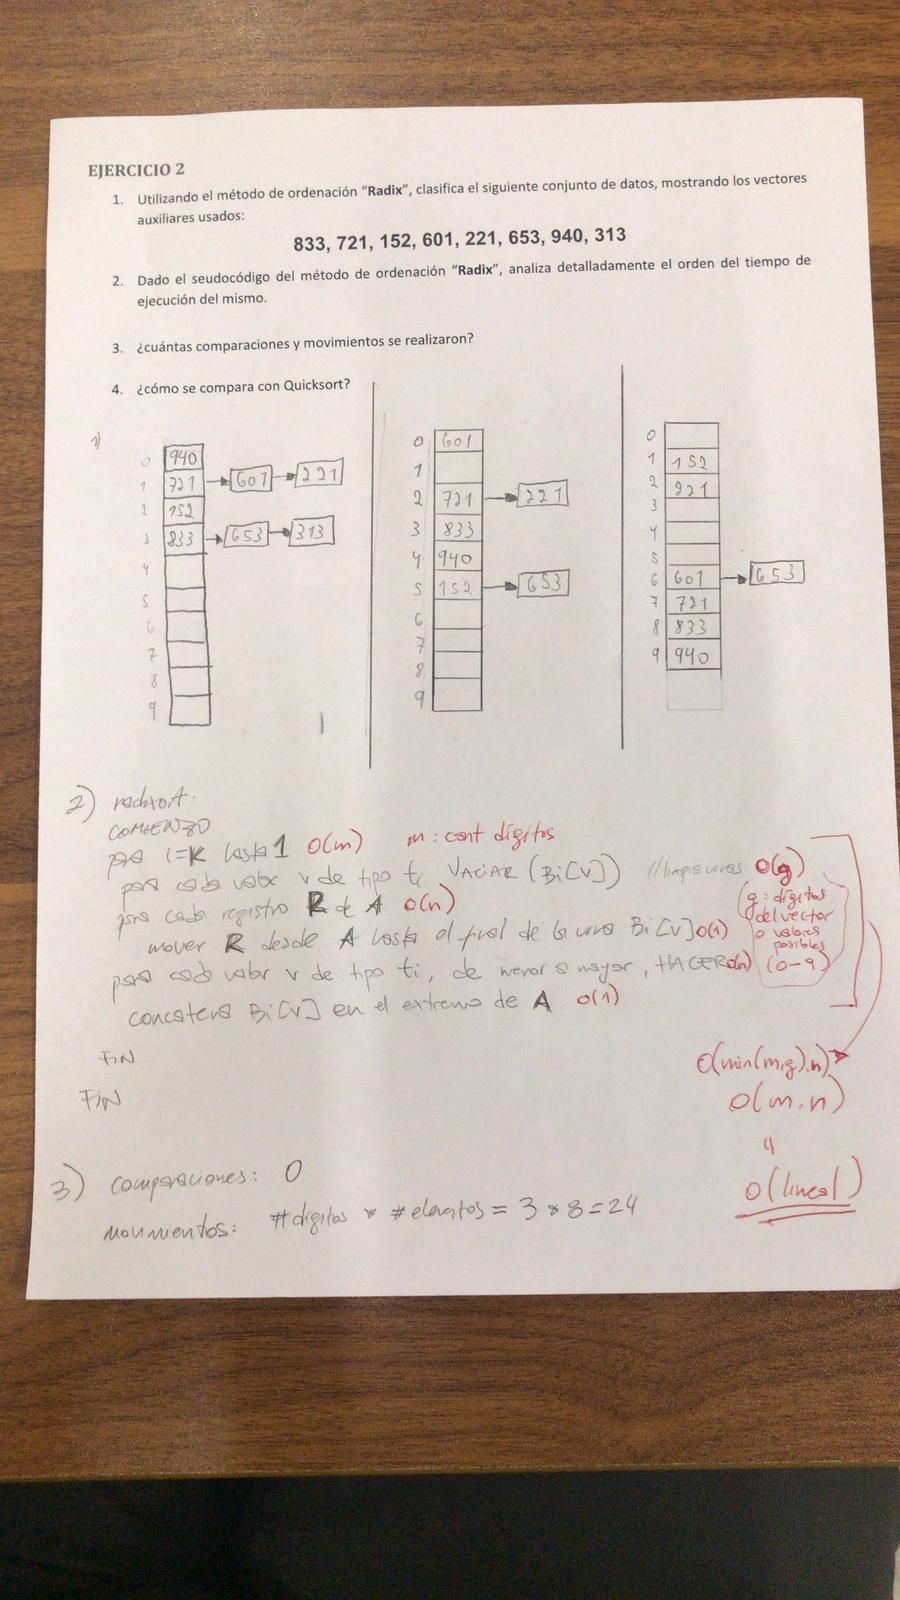 EJERCICIO 2
1. Utilizando el método de ordenación “Radix”, clasifica el siguiente conjunto de datos, mostrando los vectores
auxiliares usados:
833, 721, 152, 601, 221, 653, 940, 313
2. Dado el seudocódigo del método de ordenación “Radix”, analiza detalladamente el orden del tiempo de
ejecución del mismo.
3. ¿cuántas comparaciones y movimientos se realizaron?
4. ¿cómo se compara con Quicksort?
1)
0 940
1 721 601 221
2 152
3 833 653 313
4
5
6
7
8
9
0 601
1
2 721 221
3 833
4 940
5 152 653
6
7
8
9
0
1 152
2 221
3
4
5
6 601 653
7 721
8 833
9 940
2) radixsort:
COMIENZO
para i=K hasta 1 O(m) m: cant dígitos
para cada valor v de tipo ti VACIAR (Bi[v]) //limpia urnas O(g)
(g: dígitos
del vector
o valores
posibles
(0-9)
para cada registro R de A O(n)
mover R desde A hasta el final de la urna Bi[v] O(1)
para cada valor v de tipo ti, de menor a mayor, HACER O(n)
concatena Bi[v] en el extremo de A. O(1)
FIN
FIN
O(min(m,g).n)
O(m.n)
O(lineal)
3) comparaciones: 0
movimientos: #dígitos * #elementos = 3*8=24